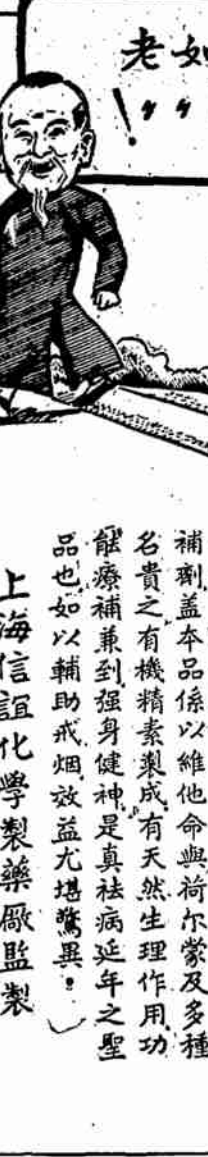 如
老
補劑蓋本品係以維他命與荷尔蒙及多種
名貴之有機精素製成有天然生理作用功
能療補兼到强身健神是真祛病延年之聖
品也如以輔助戒烟效益尤堪驚異！
上海信誼化學製藥厰監製